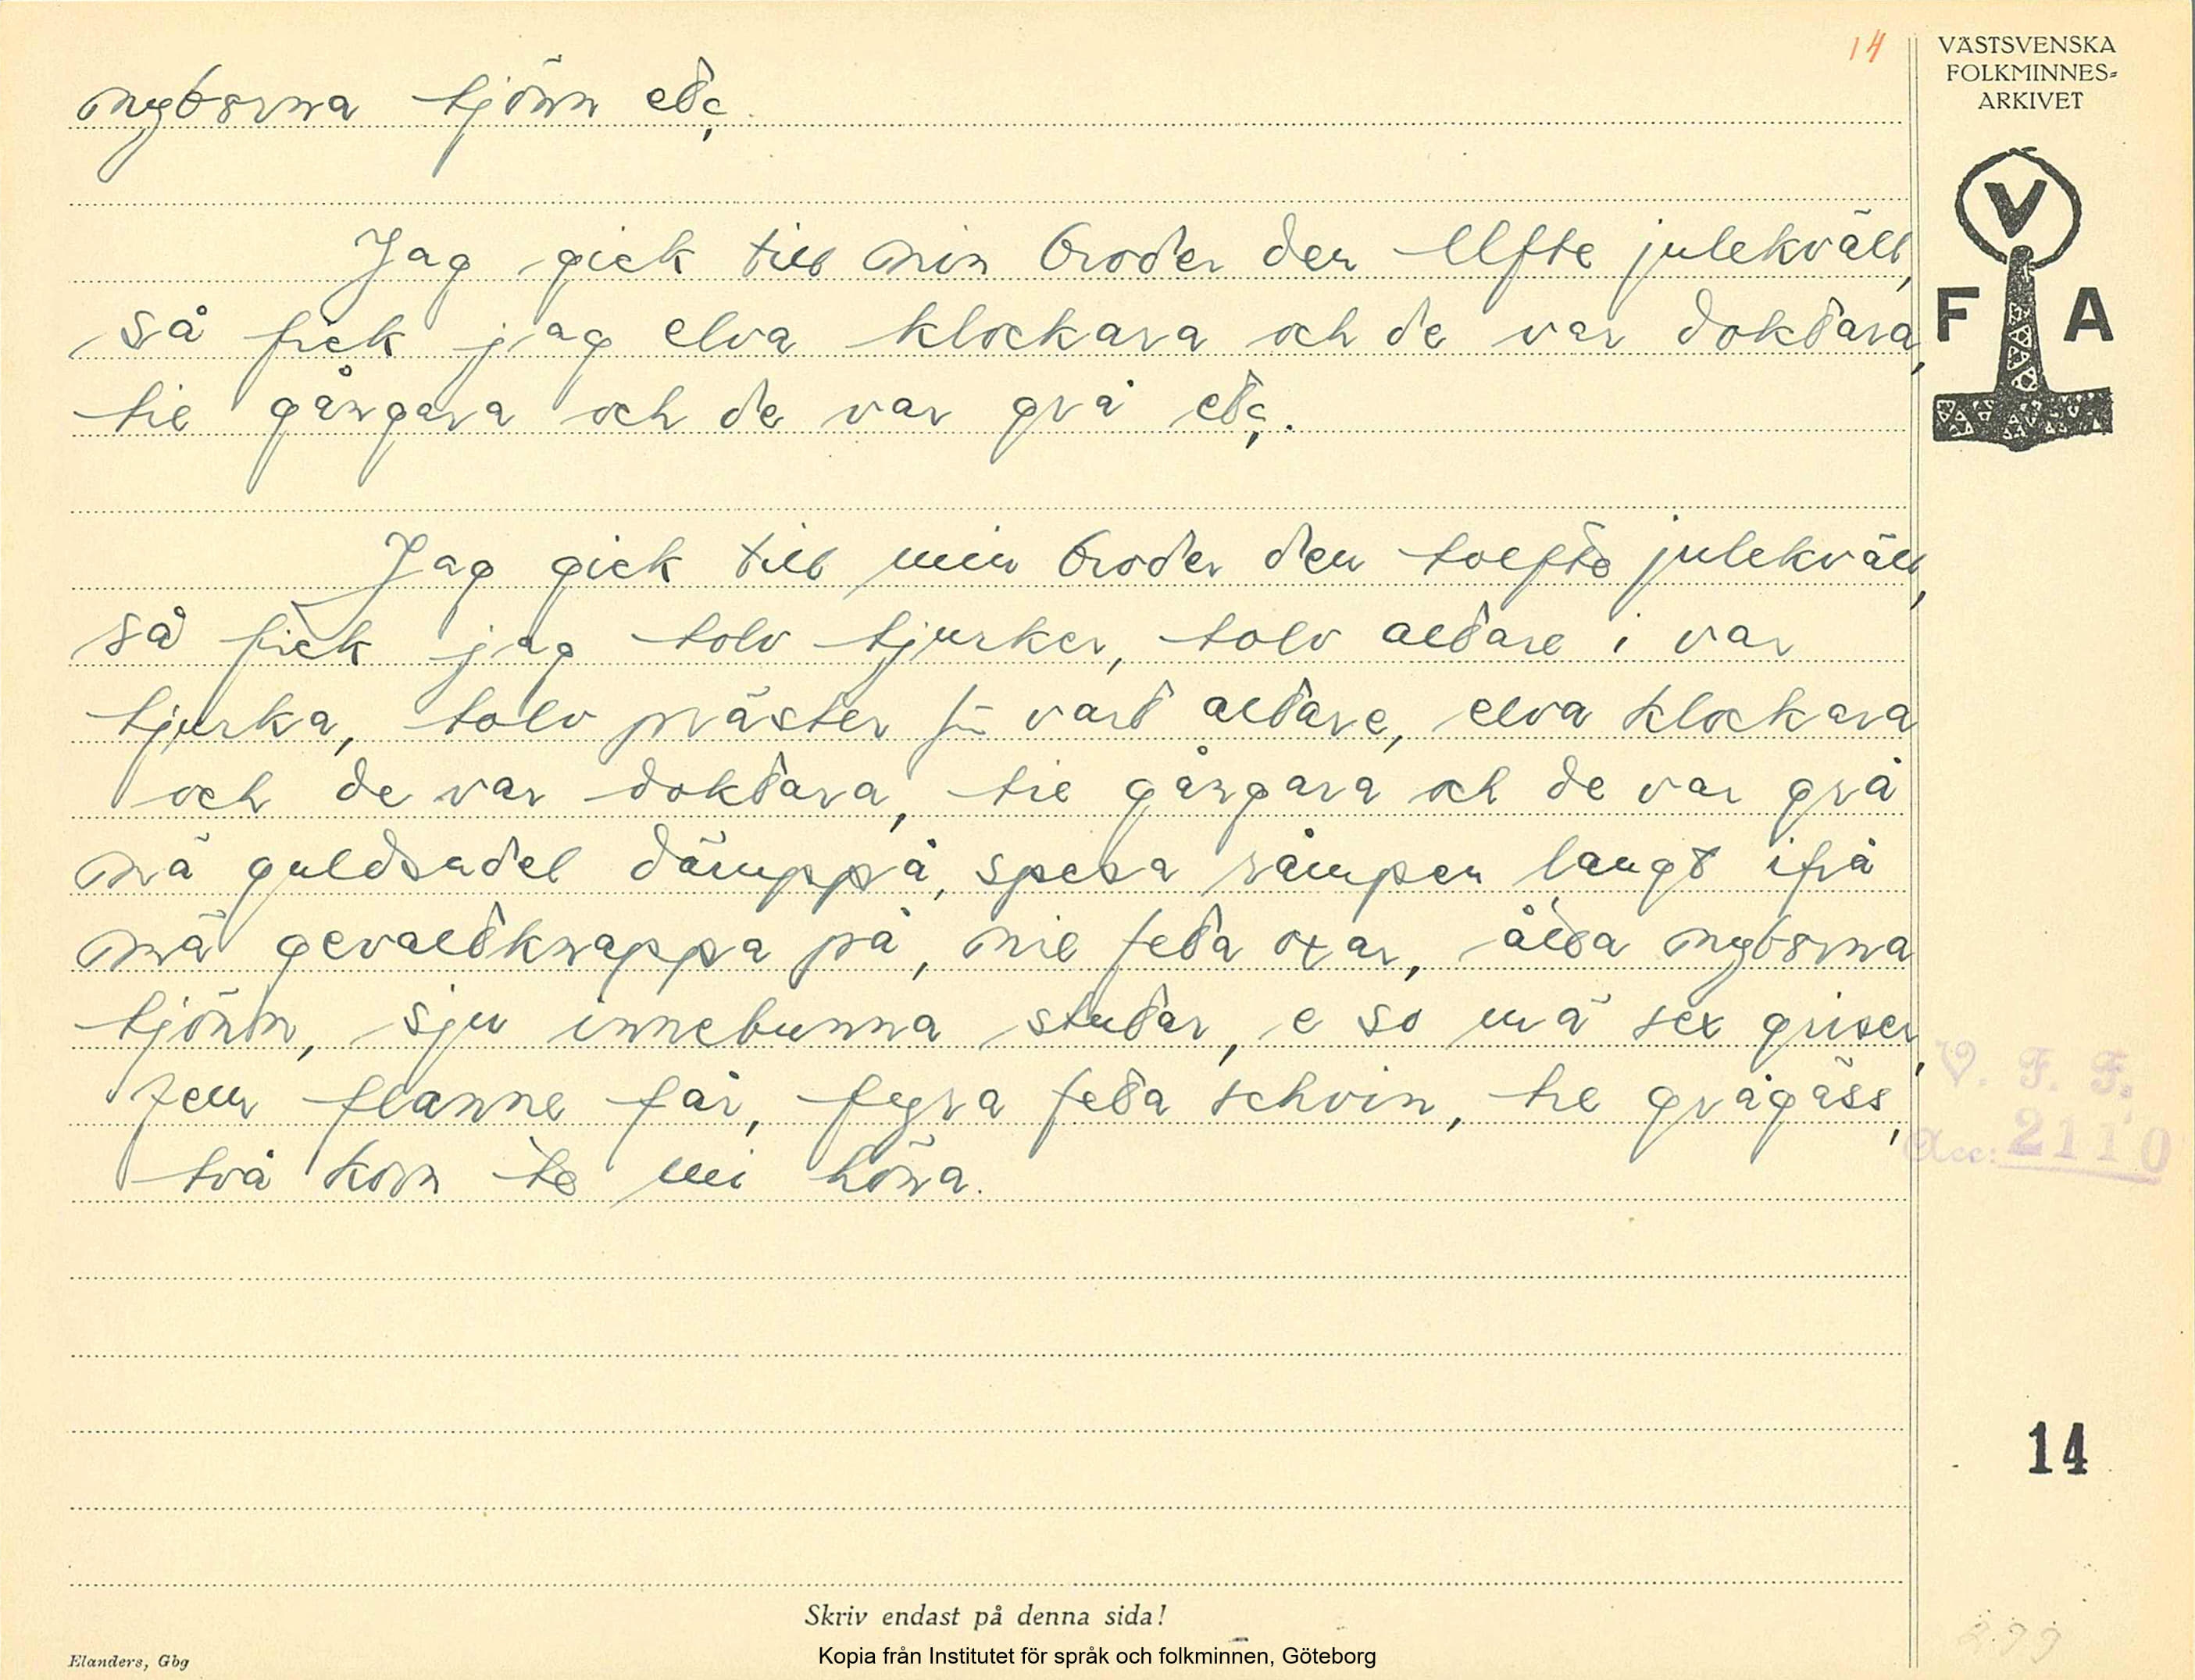 14
VÄSTSVENSKA
FOLKMINNES=
ARKIVET
V
F A
nyborna tjönn etc.
Jag gick till min broder den elfte julekväll,
så fick jag elva klockara och de var doktara,
tie gångara och de var grå etc.
Jag gick till min broder den tolfte julekväll,
så fick jag tolv tjurker, tolv altare i var
tjurka, tolv präster för vart altare, elva klockara
och de var doktara, tie gångara och de var grå
mä guldsadel dämppå, spera rämpen langt ifrå
mä gevaltknappa på, nie feta oxar, åtta nyborna
tjönn, sju innebunna stutar, e so mä sex griser,
fem flanne får, fyra feta schvin, tre grågäss,
två korn te mi höna.
V. F. F.
Acc: 2110
14
299
Skriv endast på denna sida!
Elanders, Gbg
Kopia från Institutet för språk och folkminnen, Göteborg